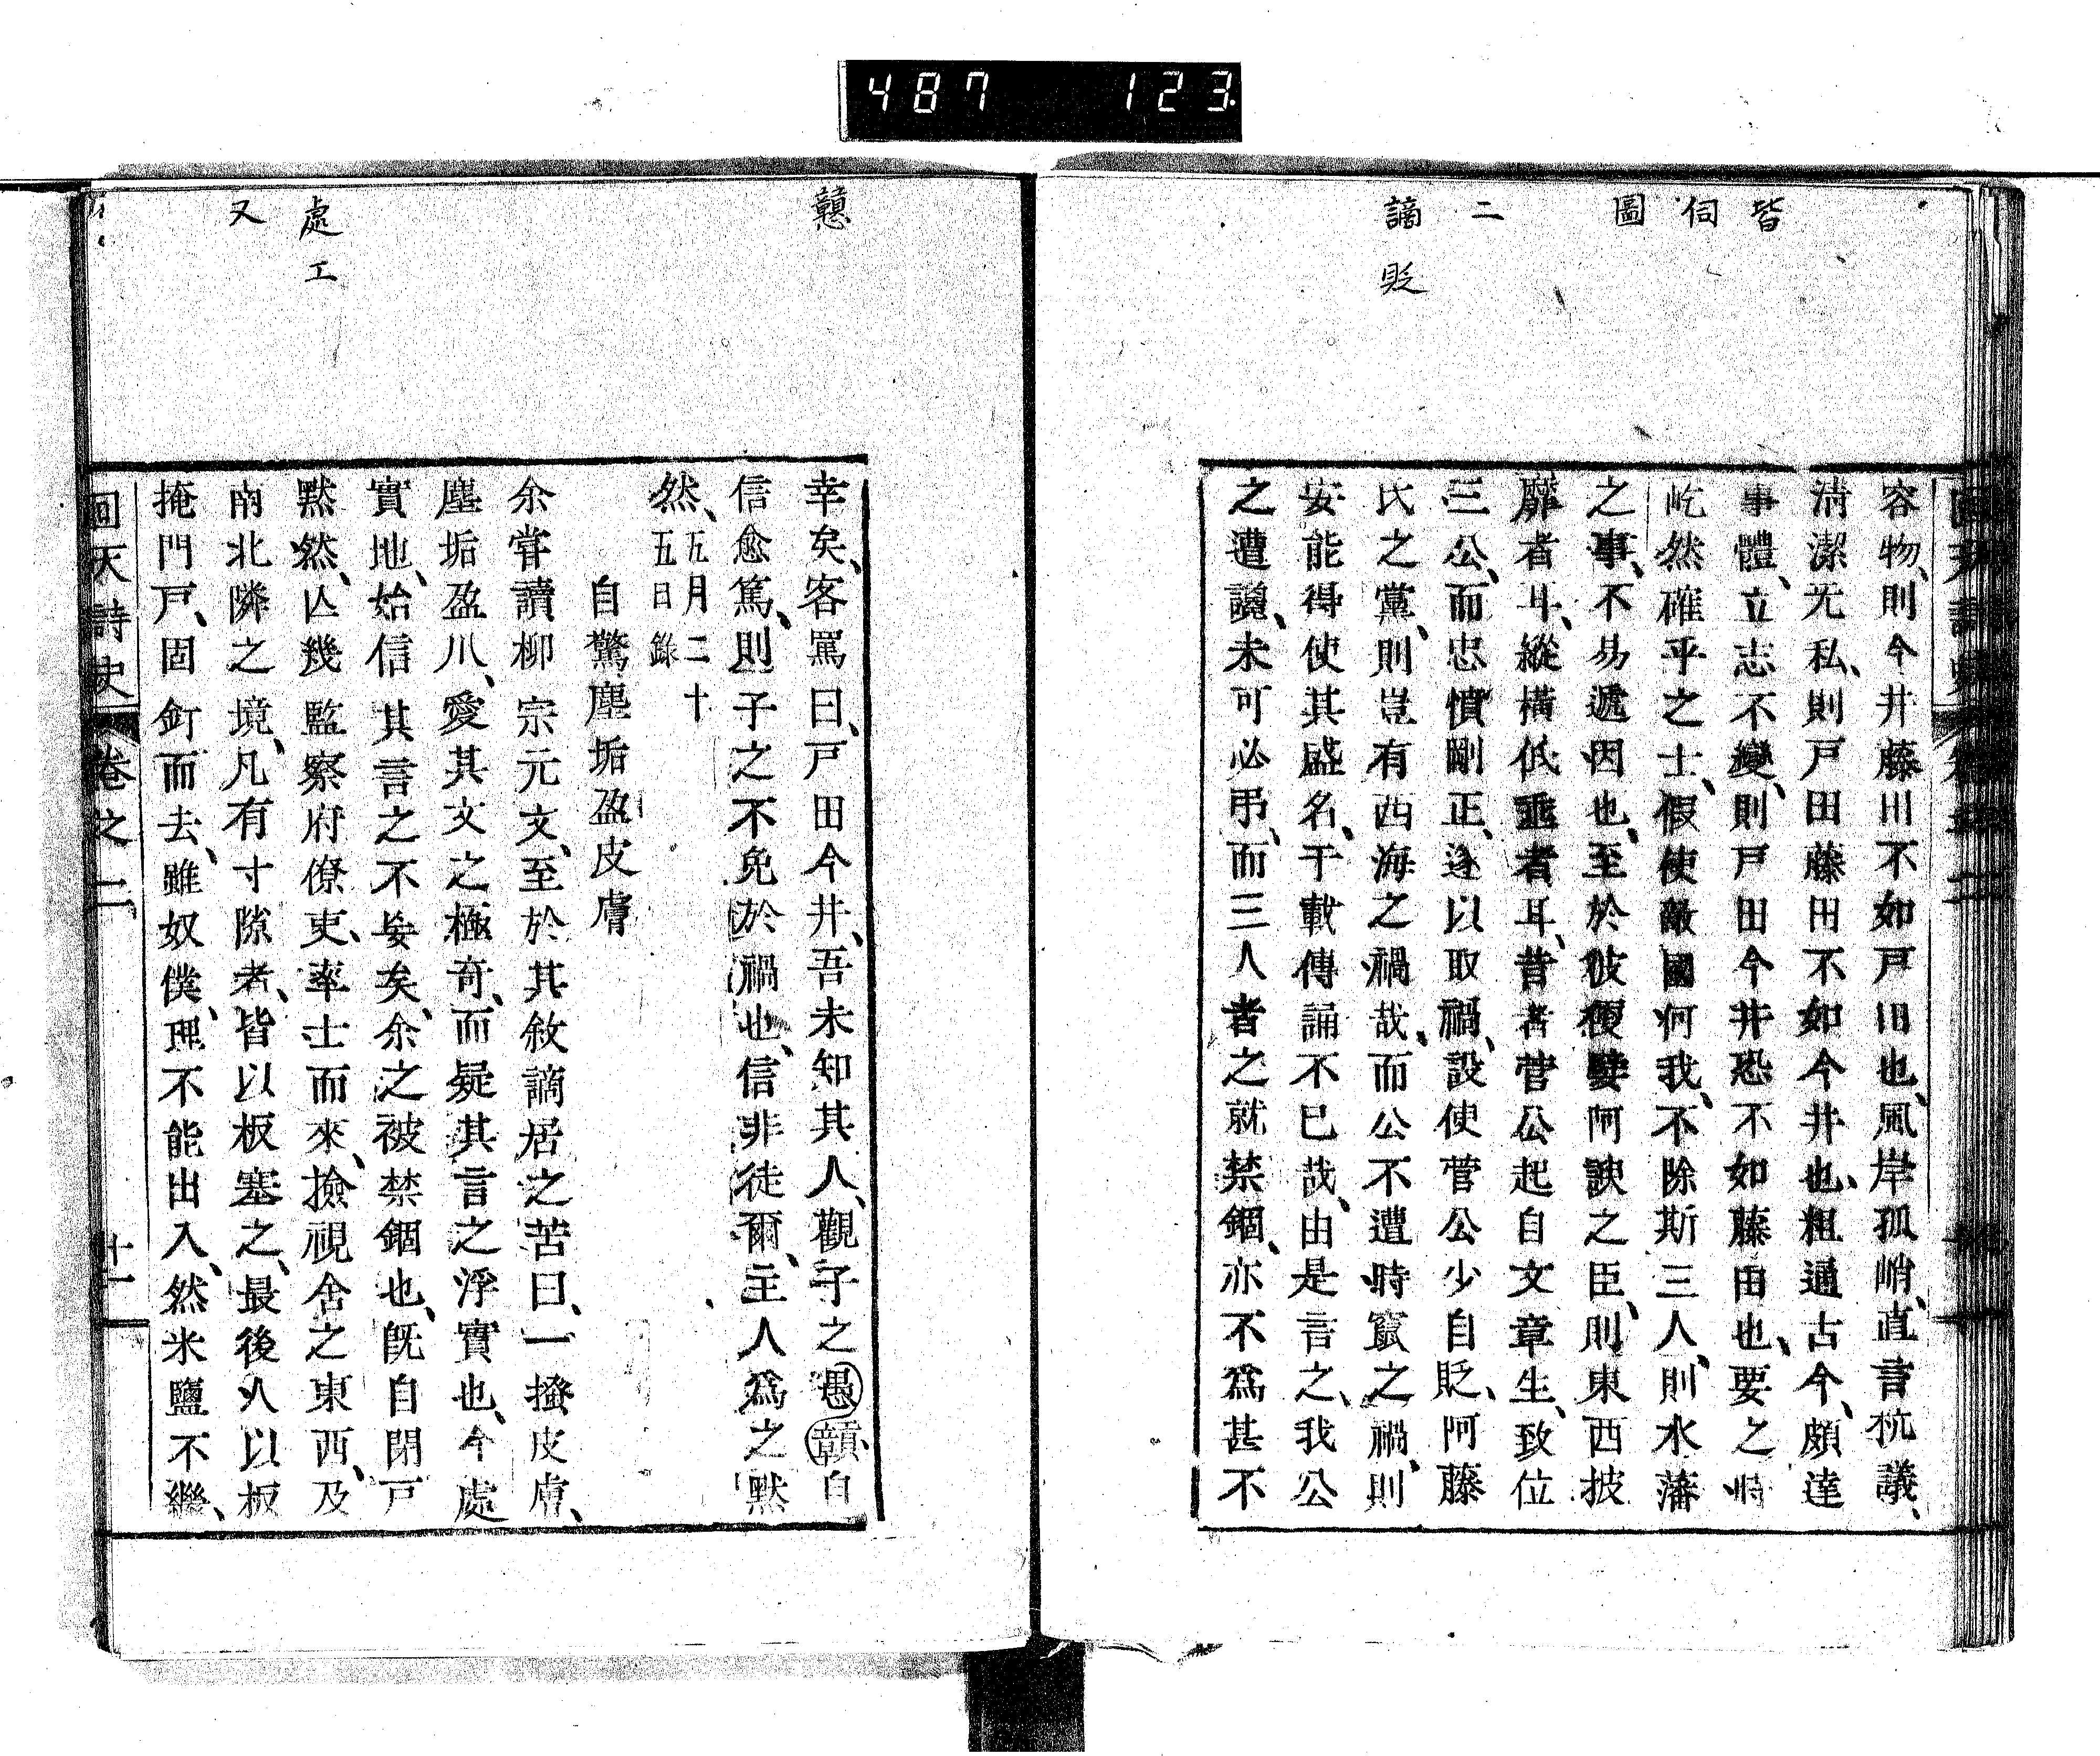 487 123
皆
伺
圖
二
謫
貶
容物、則今井藤田不如戸田也、風岸孤峭、直言抗議、
清潔无私、則戸田藤田不如今井也、粗通古今、頗達
事體、立志不變、則戸田今井恐不如藤田也、要之時
屹然確乎之士、假使敵國何我、不除斯三人、則水藩
之事、不易遽因也、至於彼便嬖阿諛之臣、則東西披
靡者耳、縱橫低垂者耳、昔者菅公起自文章生、致位
三公、而忠憤剛正、遂以取禍、設使菅公少自貶、阿藤
氏之黨、則豈有西海之禍哉、而公不遭時竄之禍、則
安能得使其盛名、千載傳誦不已哉、由是言之、我公
之遭讒、未可必弔、而三人者之就禁錮、亦不爲甚不
戇
處
工
又
幸矣、客罵曰、戸田今井、吾未知其人、觀子之愚贛自
信愈篤、則子之不免於禍也、信非徒爾、主人爲之默
然、五月二十五日錄
自驚塵垢盈皮膚
余嘗讀柳宗元文、至於其敘謫居之苦曰、一搔皮膚、
塵垢盈爪、愛其文之極奇、而疑其言之浮實也、今處
實地、始信其言之不妄矣、余之被禁錮也、旣自閉戸
默然、亾幾監察府僚吏、率士而來、撿視舍之東西、及
南北隣之境、凡有寸隙者、皆以板塞之、最後八以板
掩門戸、固釘而去、雖奴僕、理不能出入、然米鹽不繼、
回天詩史 卷之二 十一